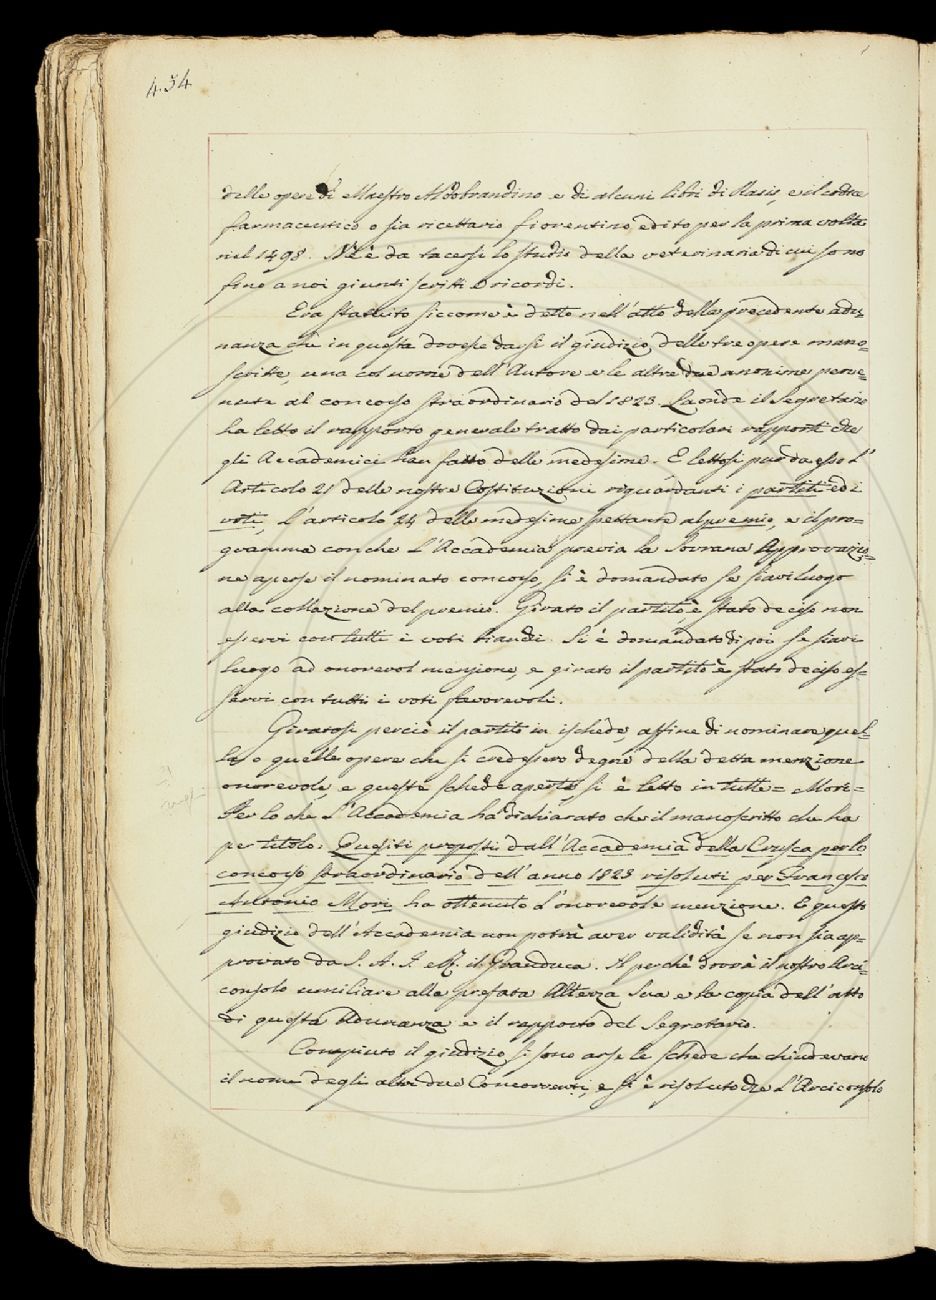 434
delle opere di Maestro Aldobrandino e di alcuni libri di Rasis, e il codice
farmaceutico o sia ricettario fiorentino edito per la prima volta
nel 1498. Nè è da tacersi lo studio della veterinaria di cui sono
fino a noi giunti scritti ricordi.
Era stabilito siccome è detto nell'atto della precedente adu=
nanza che in questa dovesse darsi il giudizio delle tre opere mano=
scritte, una col nome dell'Autore e le altre due anonime perve=
nute al concorso straordinario del 1823. Laonde il Segretario
ha letto il rapporto generale tratto dai particolari rapporti che
gli Accademici han fatto delle medesime. E lettosi pur da esso l'
Articolo 21 delle nostre Costituzioni riguardanti i partiti ed i
voti, l'articolo 24 delle medesime spettante al premio, e il pro=
gramma con che l'Accademia previa la Sovrana Approvazio=
ne aperse il nominato concorso, si è domandato se siavi luogo
alla collazione del premio. Girato il partito, è stato deciso non
esservi con tutti i voti bianchi. Si è domandato di poi se siavi
luogo ad onorevol menzione, e girato il partito è stato deciso es=
servi con tutti i voti favorevoli.
Giratosi perciò il partito in ischede, affine di nominare quel=
la o quelle opere che si credessero degne della detta menzione
onorevole, e queste schede aperte, si è letto in tutte = Mori =
Per lo che l'Accademia ha dichiarato che il manoscritto che ha
per titolo: Quesiti proposti dall'Accademia della Crusca per lo
concorso straordinario dell'anno 1823 risoluti per Francesco
Antonio Mori ha ottenuto l'onorevole menzione. E questo
giudizio dell'Accademia non potrà aver validità se non sia ap=
provato da S. A. I. e R. il Granduca. Il perchè dovrà il nostro Arci=
consolo umiliare alla prefata Altezza Sua e la copia dell'atto
di questa Adunanza e il rapporto del Segretario.
Compiuto il giudizio si sono arse le schede che chiudevano
il nome degli altri due Concorrenti, e si è risoluto che l'Arciconsolo